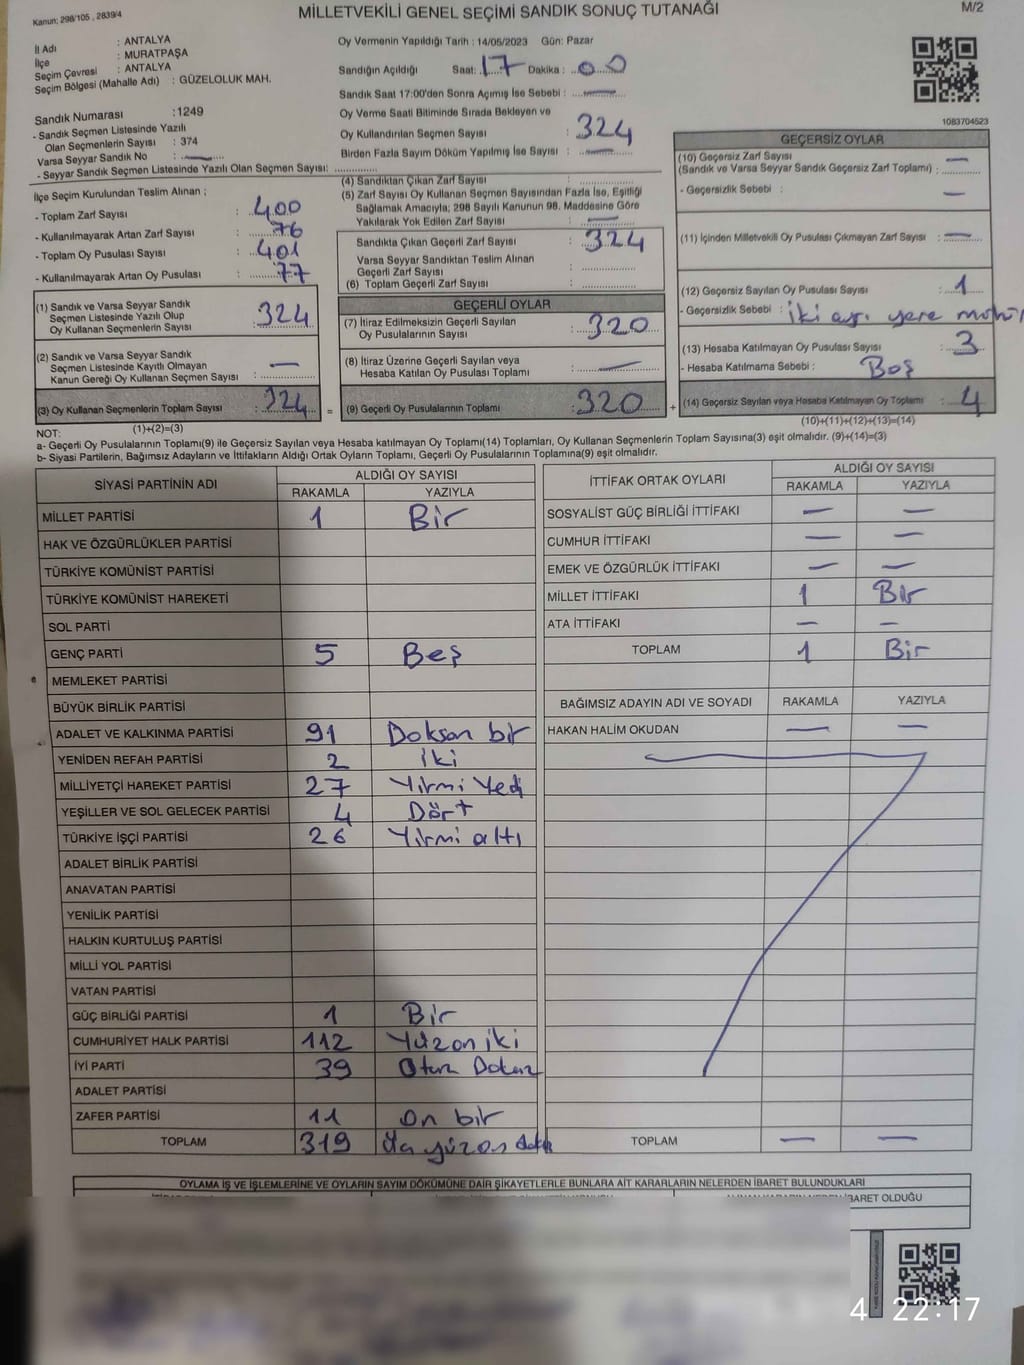 Kanun: 298/105 , 2839/4
MİLLETVEKİLİ GENEL SEÇİMİ SANDIK SONUÇ TUTANAĞI
M/2
İl Adı : ANTALYA
İlçe : MURATPAŞA
Seçim Çevresi : ANTALYA
Seçim Bölgesi (Mahalle Adı) : GÜZELOLUK MAH.
Sandık Numarası : 1249
- Sandık Seçmen Listesinde Yazılı
Olan Seçmenlerin Sayısı : 374
Varsa Seyyar Sandık No : —
- Seyyar Sandık Seçmen Listesinde Yazılı Olan Seçmen Sayısı: ..............
İlçe Seçim Kurulundan Teslim Alınan ;
- Toplam Zarf Sayısı : 400
- Kullanılmayarak Artan Zarf Sayısı : 76
- Toplam Oy Pusulası Sayısı : 401
- Kullanılmayarak Artan Oy Pusulası : 77
(1) Sandık ve Varsa Seyyar Sandık
Seçmen Listesinde Yazılı Olup
Oy Kullanan Seçmenlerin Sayısı : 324
(2) Sandık ve Varsa Seyyar Sandık
Seçmen Listesinde Kayıtlı Olmayan
Kanun Gereği Oy Kullanan Seçmen Sayısı : —
(3) Oy Kullanan Seçmenlerin Toplam Sayısı : 324
(1)+(2)=(3)
Oy Vermenin Yapıldığı Tarih : 14/05/2023 Gün: Pazar
Sandığın Açıldığı Saat: 17 Dakika : 00
Sandık Saat 17:00'den Sonra Açımış İse Sebebi : —
Oy Verme Saati Bitiminde Sırada Bekleyen ve
Oy Kullandırılan Seçmen Sayısı : 324
Birden Fazla Sayım Döküm Yapılmış İse Sayısı : —
(4) Sandıktan Çıkan Zarf Sayısı : ..............
(5) Zarf Sayısı Oy Kullanan Seçmen Sayısından Fazla İse, Eşitliği
Sağlamak Amacıyla; 298 Sayılı Kanunun 98. Maddesine Göre
Yakılarak Yok Edilen Zarf Sayısı : —
Sandıkta Çıkan Geçerli Zarf Sayısı : 324
Varsa Seyyar Sandıktan Teslim Alınan
Geçerli Zarf Sayısı : ..............
(6) Toplam Geçerli Zarf Sayısı : ..............
GEÇERLİ OYLAR
(7) İtiraz Edilmeksizin Geçerli Sayılan
Oy Pusulalarının Sayısı : 320
(8) İtiraz Üzerine Geçerli Sayılan veya
Hesaba Katılan Oy Pusulası Toplamı : —
= (9) Geçerli Oy Pusulalarının Toplamı : 320 +
1083704523
GEÇERSİZ OYLAR
(10) Geçersiz Zarf Sayısı
(Sandık ve Varsa Seyyar Sandık Geçersiz Zarf Toplamı) : —
- Geçersizlik Sebebi : —
(11) İçinden Milletvekili Oy Pusulası Çıkmayan Zarf Sayısı : —
(12) Geçersiz Sayılan Oy Pusulası Sayısı : 1
- Geçersizlik Sebebi : iki ayrı yere
(13) Hesaba Katılmayan Oy Pusulası Sayısı : 3
- Hesaba Katılmama Sebebi : Boş
(14) Geçersiz Sayılan veya Hesaba Katılmayan Oy Toplamı : 4
(10)+(11)+(12)+(13)=(14)
NOT:
a- Geçerli Oy Pusulalarının Toplamı(9) ile Geçersiz Sayılan veya Hesaba katılmayan Oy Toplamı(14) Toplamları, Oy Kullanan Seçmenlerin Toplam Sayısına(3) eşit olmalıdır. (9)+(14)=(3)
b- Siyasi Partilerin, Bağımsız Adayların ve İttifakların Aldığı Ortak Oyların Toplamı, Geçerli Oy Pusulalarının Toplamına(9) eşit olmalıdır.
SİYASİ PARTİNİN ADI ALDIĞI OY SAYISI
RAKAMLA YAZIYLA
MİLLET PARTİSİ 1 Bir
HAK VE ÖZGÜRLÜKLER PARTİSİ
TÜRKİYE KOMÜNİST PARTİSİ
TÜRKİYE KOMÜNİST HAREKETİ
SOL PARTİ
GENÇ PARTİ 5 Beş
MEMLEKET PARTİSİ
BÜYÜK BİRLİK PARTİSİ
ADALET VE KALKINMA PARTİSİ 91 Doksan bir
YENİDEN REFAH PARTİSİ 2 iki
MİLLİYETÇİ HAREKET PARTİSİ 27 Yirmi Yedi
YEŞİLLER VE SOL GELECEK PARTİSİ 4 Dört
TÜRKİYE İŞÇİ PARTİSİ 26 Yirmi altı
ADALET BİRLİK PARTİSİ
ANAVATAN PARTİSİ
YENİLİK PARTİSİ
HALKIN KURTULUŞ PARTİSİ
MİLLİ YOL PARTİSİ
VATAN PARTİSİ
GÜÇ BİRLİĞİ PARTİSİ 1 Bir
CUMHURİYET HALK PARTİSİ 112 Yüzoniki
İYİ PARTİ 39 Otuz Dokuz
ADALET PARTİSİ
ZAFER PARTİSİ 11 On bir
TOPLAM 319
İTTİFAK ORTAK OYLARI ALDIĞI OY SAYISI
RAKAMLA YAZIYLA
SOSYALİST GÜÇ BİRLİĞİ İTTİFAKI — —
CUMHUR İTTİFAKI — —
EMEK VE ÖZGÜRLÜK İTTİFAKI — —
MİLLET İTTİFAKI 1 Bir
ATA İTTİFAKI — —
TOPLAM 1 Bir
BAĞIMSIZ ADAYIN ADI VE SOYADI RAKAMLA YAZIYLA
HAKAN HALİM OKUDAN — —
TOPLAM — —
OYLAMA İŞ VE İŞLEMLERİNE VE OYLARIN SAYIM DÖKÜMÜNE DAİR ŞİKAYETLERLE BUNLARA AİT KARARLARIN NELERDEN İBARET BULUNDUKLARI
İBARET OLDUĞU
4 22:17